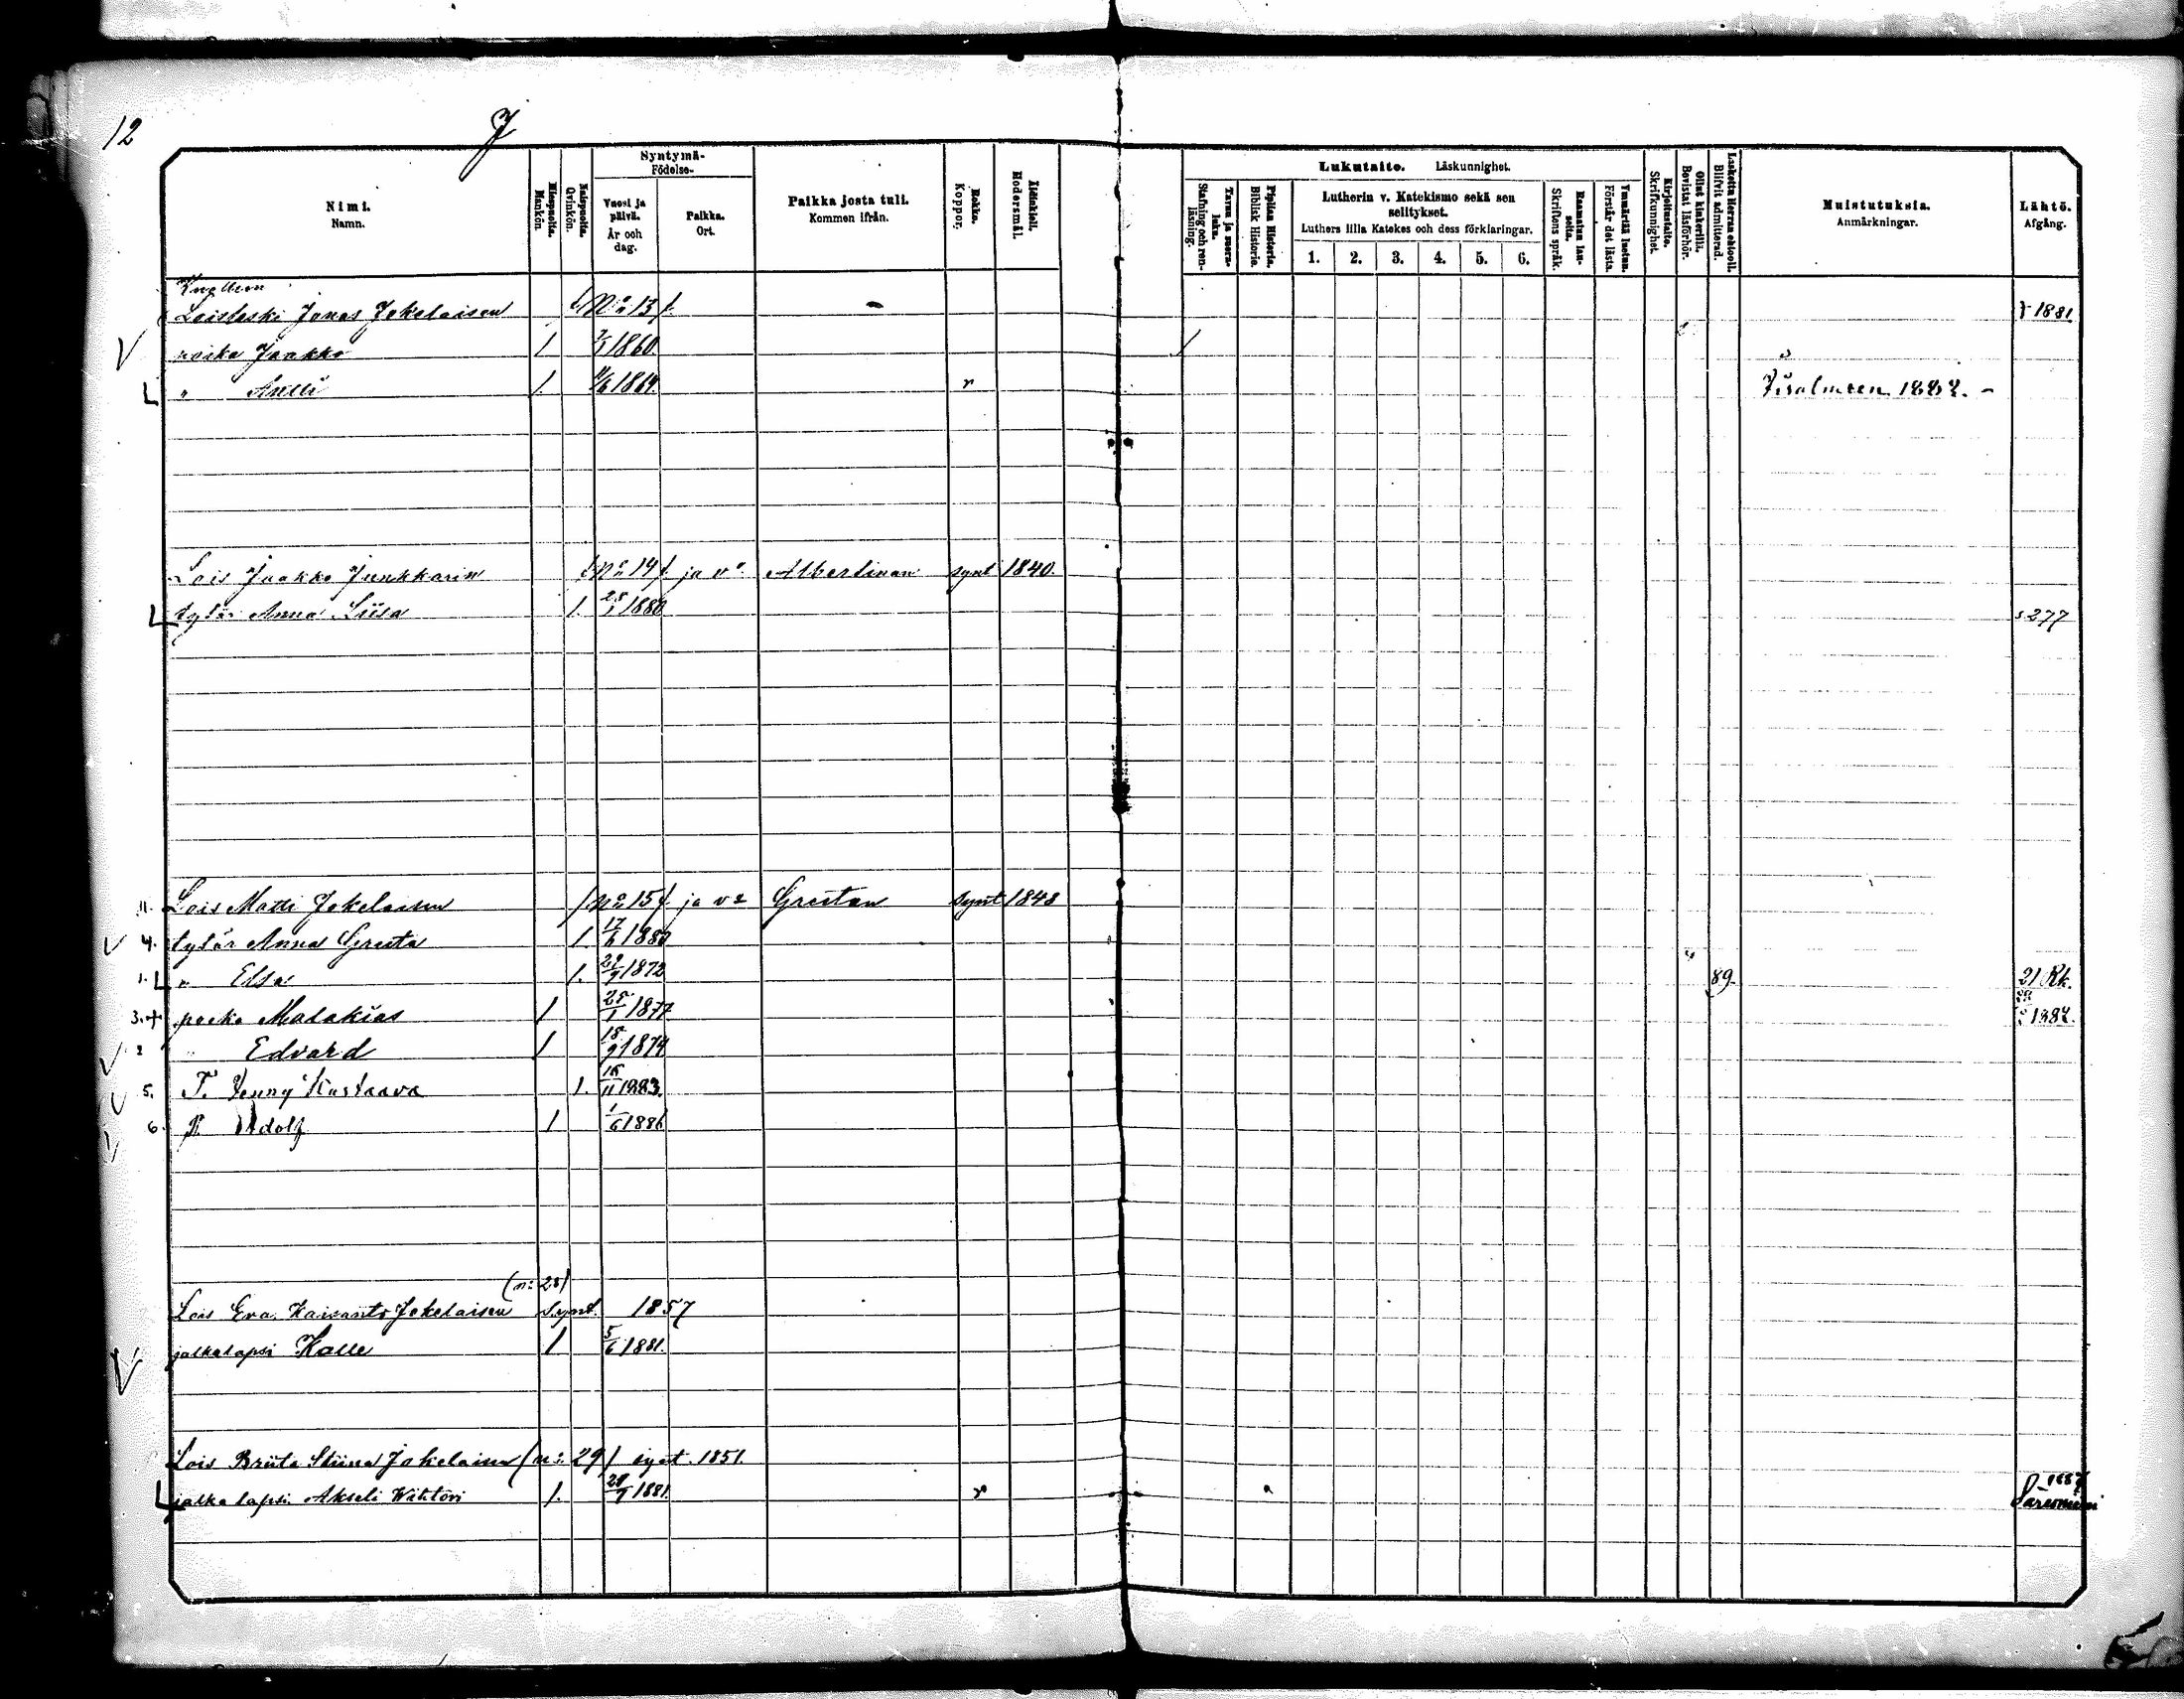 12
J
Nimi.
Namn.
Miespuolta.
Mankön.
Naispuolta.
Qvinkön.
Syntymä-
Födelse-
Vuosi ja päivä.
År och dag.
Paikka.
Ort.
Paikka josta tuli.
Kommen ifrån.
Rokko.
Koppor.
Äidinkieli.
Modersmål.
Lukutaito. Läskunnighet.
Tavuu ja suora-luku.
Stafning och ren-läsning.
Piplian Historia.
Biblisk Historie.
Lutherin v. Katekismo sekä sen selitykset.
Luthers lilla Katekes och dess förklaringar.
1. 2. 3. 4. 5. 6.
Raamatun lauseita.
Skriftens språk.
Ymmärtää luetun.
Förstår det lästa.
Kirjoitustaito.
Skrifkunnighet.
Ollut kinkerillä.
Bevistat läsförhör.
Laskettu Herran ehtooll.
Blifvit admitterad.
Muistutuksia.
Anmärkningar.
Lähtö.
Afgång.
Jonas Jokelaisen (No 13). † 1881
Jaakko 1 1860
" Antti 1. 11/6 1864. r Iisalmeen 1887. -
Lois Jaakko Junkkarin (No 14). ja vo Albertinan synt 1840.
tytär Anna Liisa 1. 1880 s 277
Lois Matti Jokelaisen (No 15). ja vo Greetan synt 1848
4. tytär Anna Greeta 1. 17/6 1880
1. " Elsa 1. 1872 89. 21 Rk.
3. + poeka Malakias 1 25/1 1877 1887.
2 " Edvard 1 18/9 1874
5. T. Jenny Kustaava 1. 16/11 1883.
6. P. Adolf 1 1/6 1886
(n: 28)
Lois Eva Jokelaisen synt. 1857
jalkalapsi Kalle 1 5/6 1881.
Lois Briita Stiina Jokelaisen (n: 29) synt. 1851.
jalkalapsi Akseli Wihtori 1. 1881. r 1887